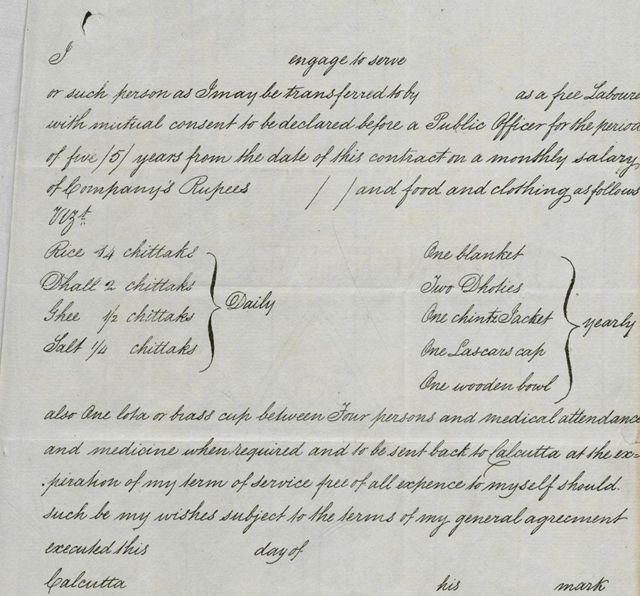 I engage to serve
or such person as I may be transferred to by as a free Laboure
with mutual consent to be declared before a Public Officer for the period
of five /5/ years from the date of this contract on a monthly salary
of Company's Rupees / / and food and clothing as follows
Vizt.
Rice 14 chittaks One blanket
Dhall 2 chittaks Two Dhoties
Ghee 1/2 chittaks Daily One chintz Jacket yearly
Salt 1/4 chittaks One Lascars cap
One wooden bowl
also One lota or brass cup between Four persons and medical attendance
and medicine when required and to be sent back to Calcutta at the ex=
piration of my term of service free of all expence to myself should
such be my wishes subject to the terms of my general agreement
executed this day of
Calcutta his mark